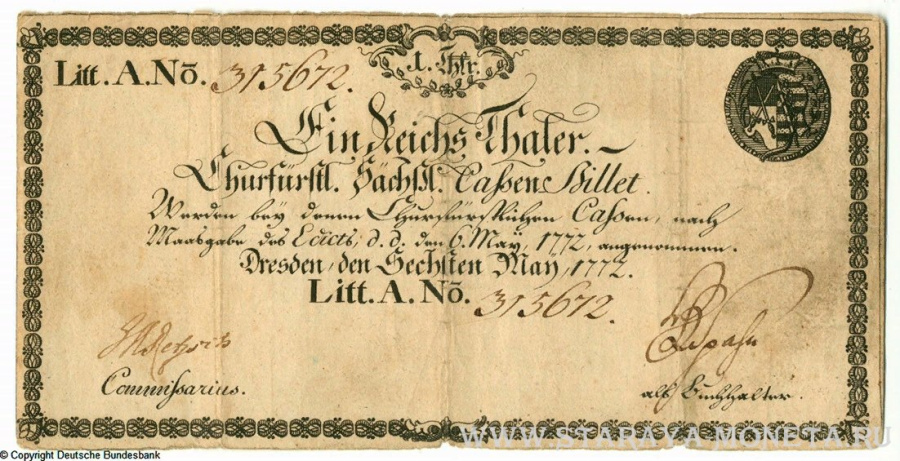 1. Thlr.
Litt. A. No. 315672.
Ein Reichs Thaler.
Churfürstl. Sächßl. Cassen Billet.
Werden bey denen Churfürstlichen Cassen, nach
Maasgabe des Edicts, d. d. den 6. May, 1772, angenommen.
Dresden, den Sechsten May, 1772.
Litt. A. No. 315672.
Commissarius.
als Buchhalter.
WWW.STARAYA-MONETA.RU
© Copyright Deutsche Bundesbank